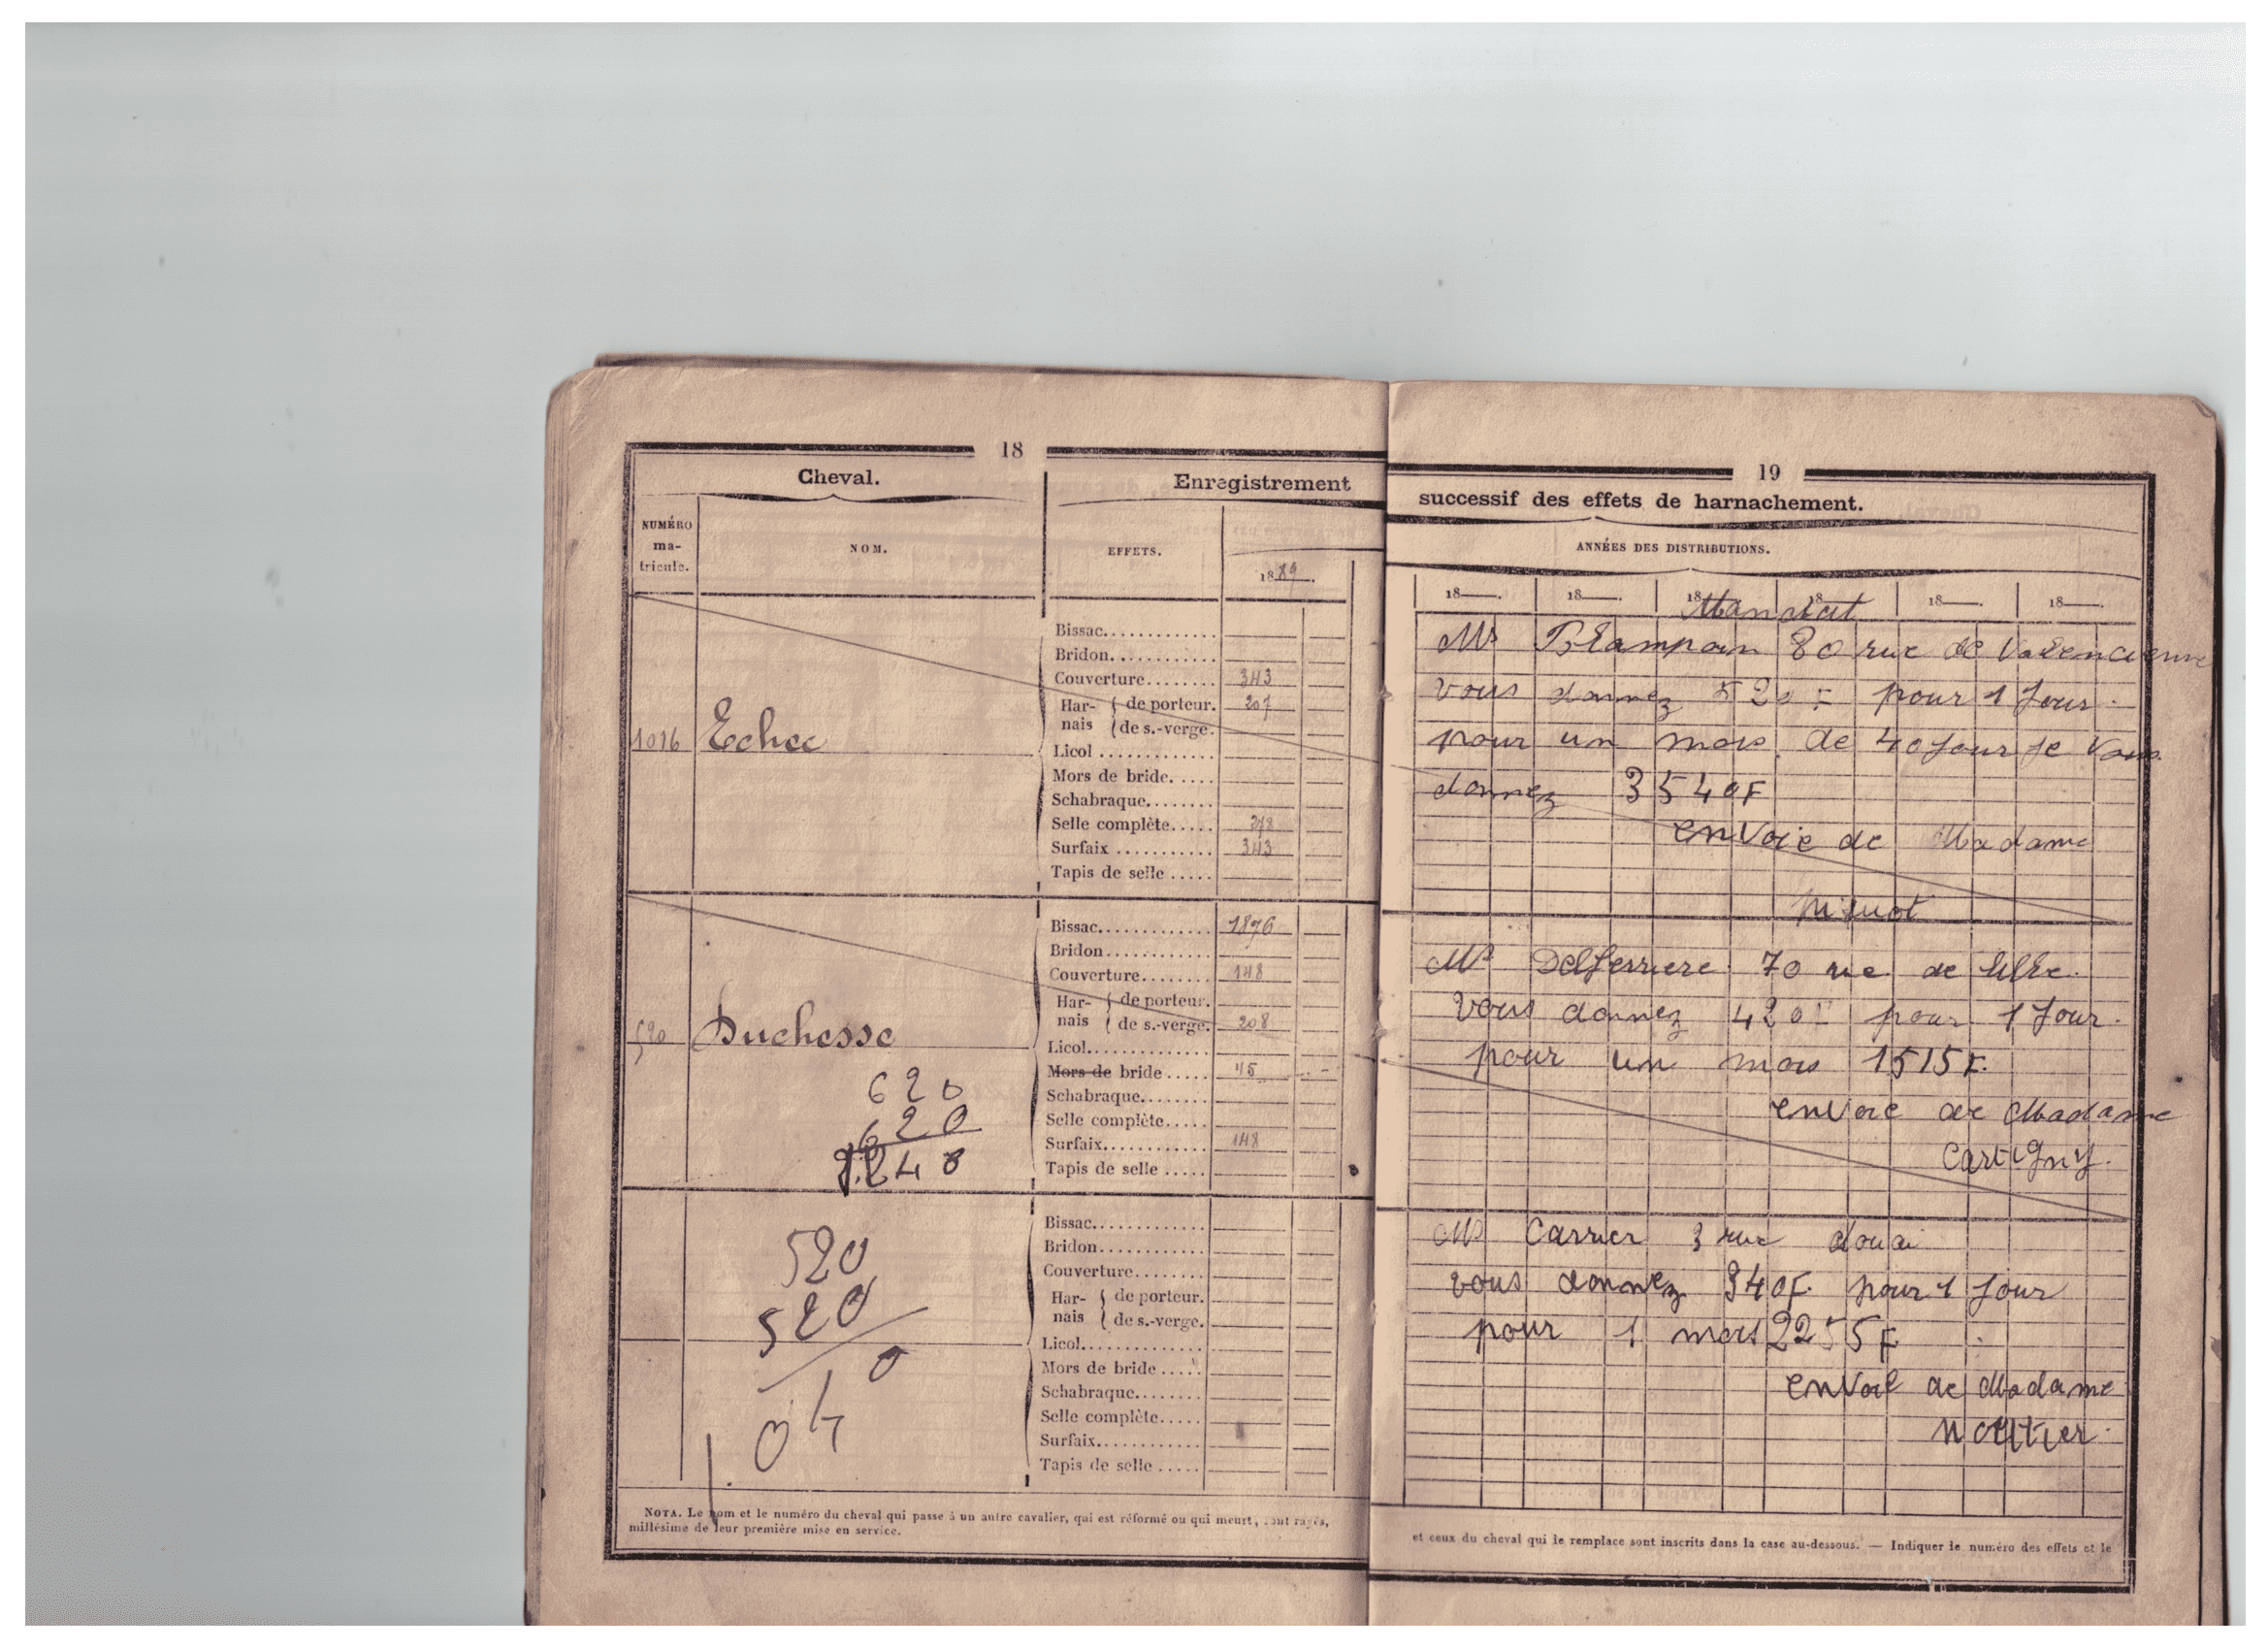 18
Cheval.
Enregistrement
NUMÉRO
ma-
tricule.
NOM.
EFFETS.
1889.
1016 Echec
Bissac............
Bridon............
Couverture........ 343
Harnais { de porteur. 207
{ de s.-verge.
Licol ............
Mors de bride.....
Schabraque........
Selle complète.....
Surfaix ........... 343
Tapis de selle .....
520 Duchesse
Bissac............ 1876
Bridon............
Couverture........ 148
Harnais { de porteur.
{ de s.-verge. 208
Licol.............
Mors de bride ..... 45
Schabraque........
Selle complète.....
Surfaix........... 148
Tapis de selle .....
620
620
1.240
520
520
Bissac............
Bridon............
Couverture........
Harnais { de porteur.
{ de s.-verge.
Licol.............
Mors de bride .....
Schabraque........
Selle complète.....
Surfaix...........
Tapis de selle .....
1.040
NOTA. Le nom et le numéro du cheval qui passe à un autre cavalier, qui est réformé ou qui meurt, sont rayés,
millésime de leur première mise en service.
19
successif des effets de harnachement.
ANNÉES DES DISTRIBUTIONS.
18—. 18—. 18—. 18—. 18—. 18—.
Mandat
Mr Blampain 80 rue de Valencienne
vous donnez 520 F pour 1 Jour.
pour un mois de 40 Jour je vous
donnez 3540F
envoie de Madame
Mr Delferriere 70 rue de lille.
Vous donnez 420F pour 1 Jour.
pour un mois 1515F.
envoie de Madame
Cartigny.
Mr Carrier 3 rue douai
vous donnez 340F. pour 1 Jour
pour 1 mois 2255F
envoie de Madame
et ceux du cheval qui le remplace sont inscrits dans la case au-dessous. — Indiquer le numéro des effets et le